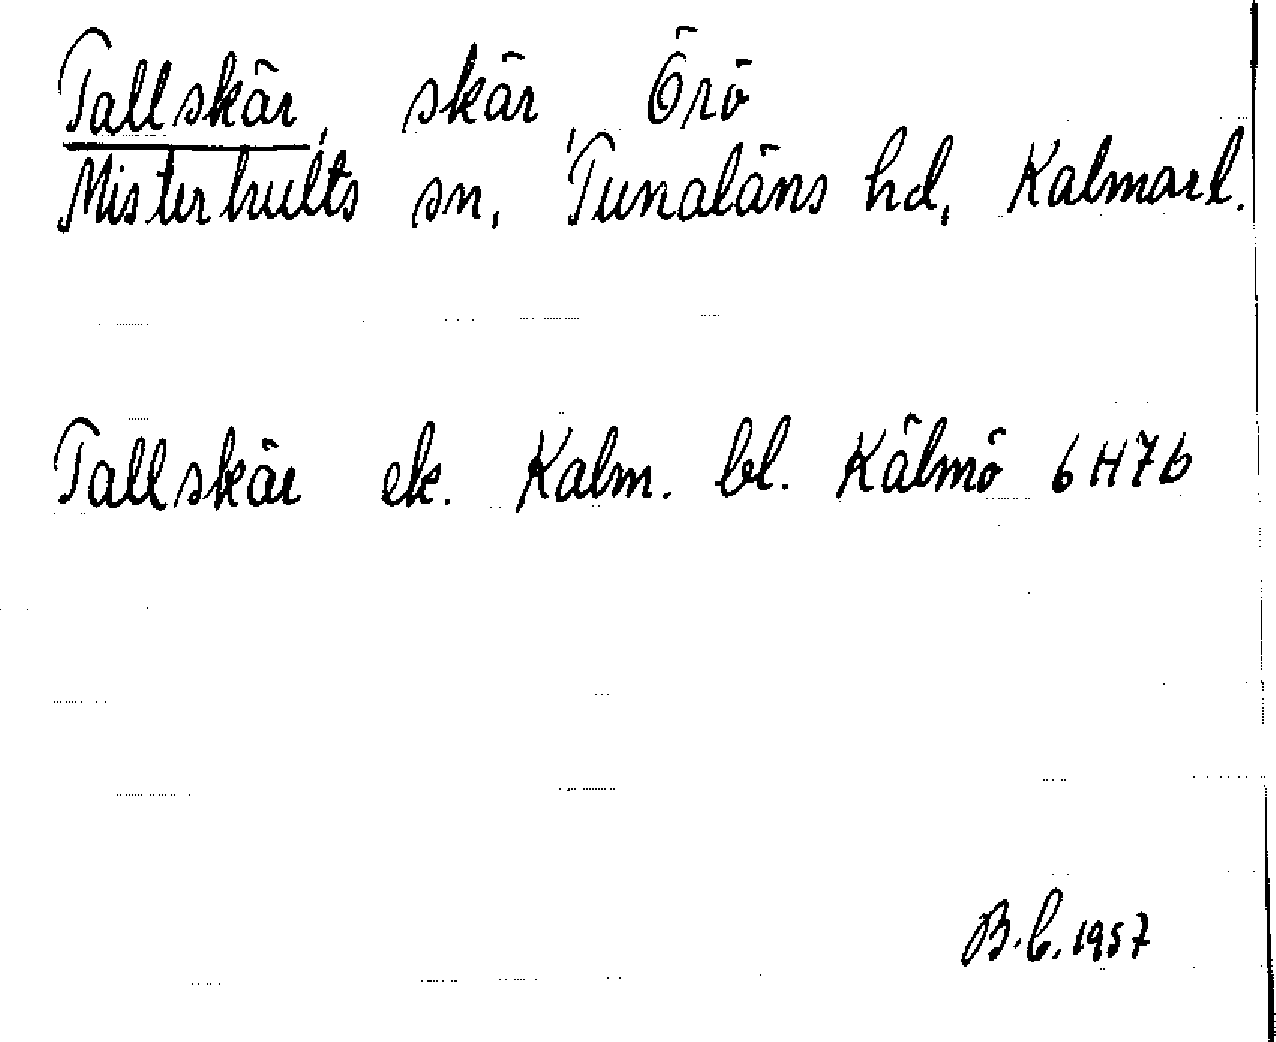 Tallskär, skär, Örö
Misterhults sn, Tunaläns hd, Kalmar l.
Tallskär ek. Kalm. bl. Kälmö 6H7b
B.C. 1957